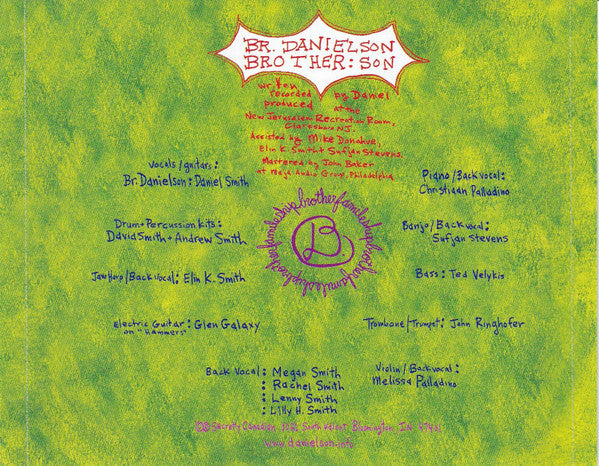 BR. DANIELSON
BROTHER: SON
written
recorded by Daniel
produced at the
New Jerusalem Recreation Room,
Clarksboro NJ.
Assisted by Mike Donahue,
Elin K. Smith & Sufjan Stevens.
Mastered by John Baker
at Maja Audio Group, Philadelphia
vocals/guitars:
Br. Danielson: Daniel Smith
Piano/Back vocal:
Christiaan Palladino
Drum + Percussion Kits:
David Smith + Andrew Smith
Banjo/Back vocal:
Sufjan Stevens
B
Jaw Harp/Back vocal: Elin K. Smith
Bass: Ted Velykis
Electric Guitar: Glen Galaxy
on "Hammers"
Trombone/Trumpet: John Ringhofer
Back Vocal: Megan Smith
: Rachel Smith
: Lenny Smith
: Lilly H. Smith
Violin/Back vocal:
Melissa Palladino
Secretly Canadian, 1021 South Walnut, Bloomington, IN 47401
www.danielson.info